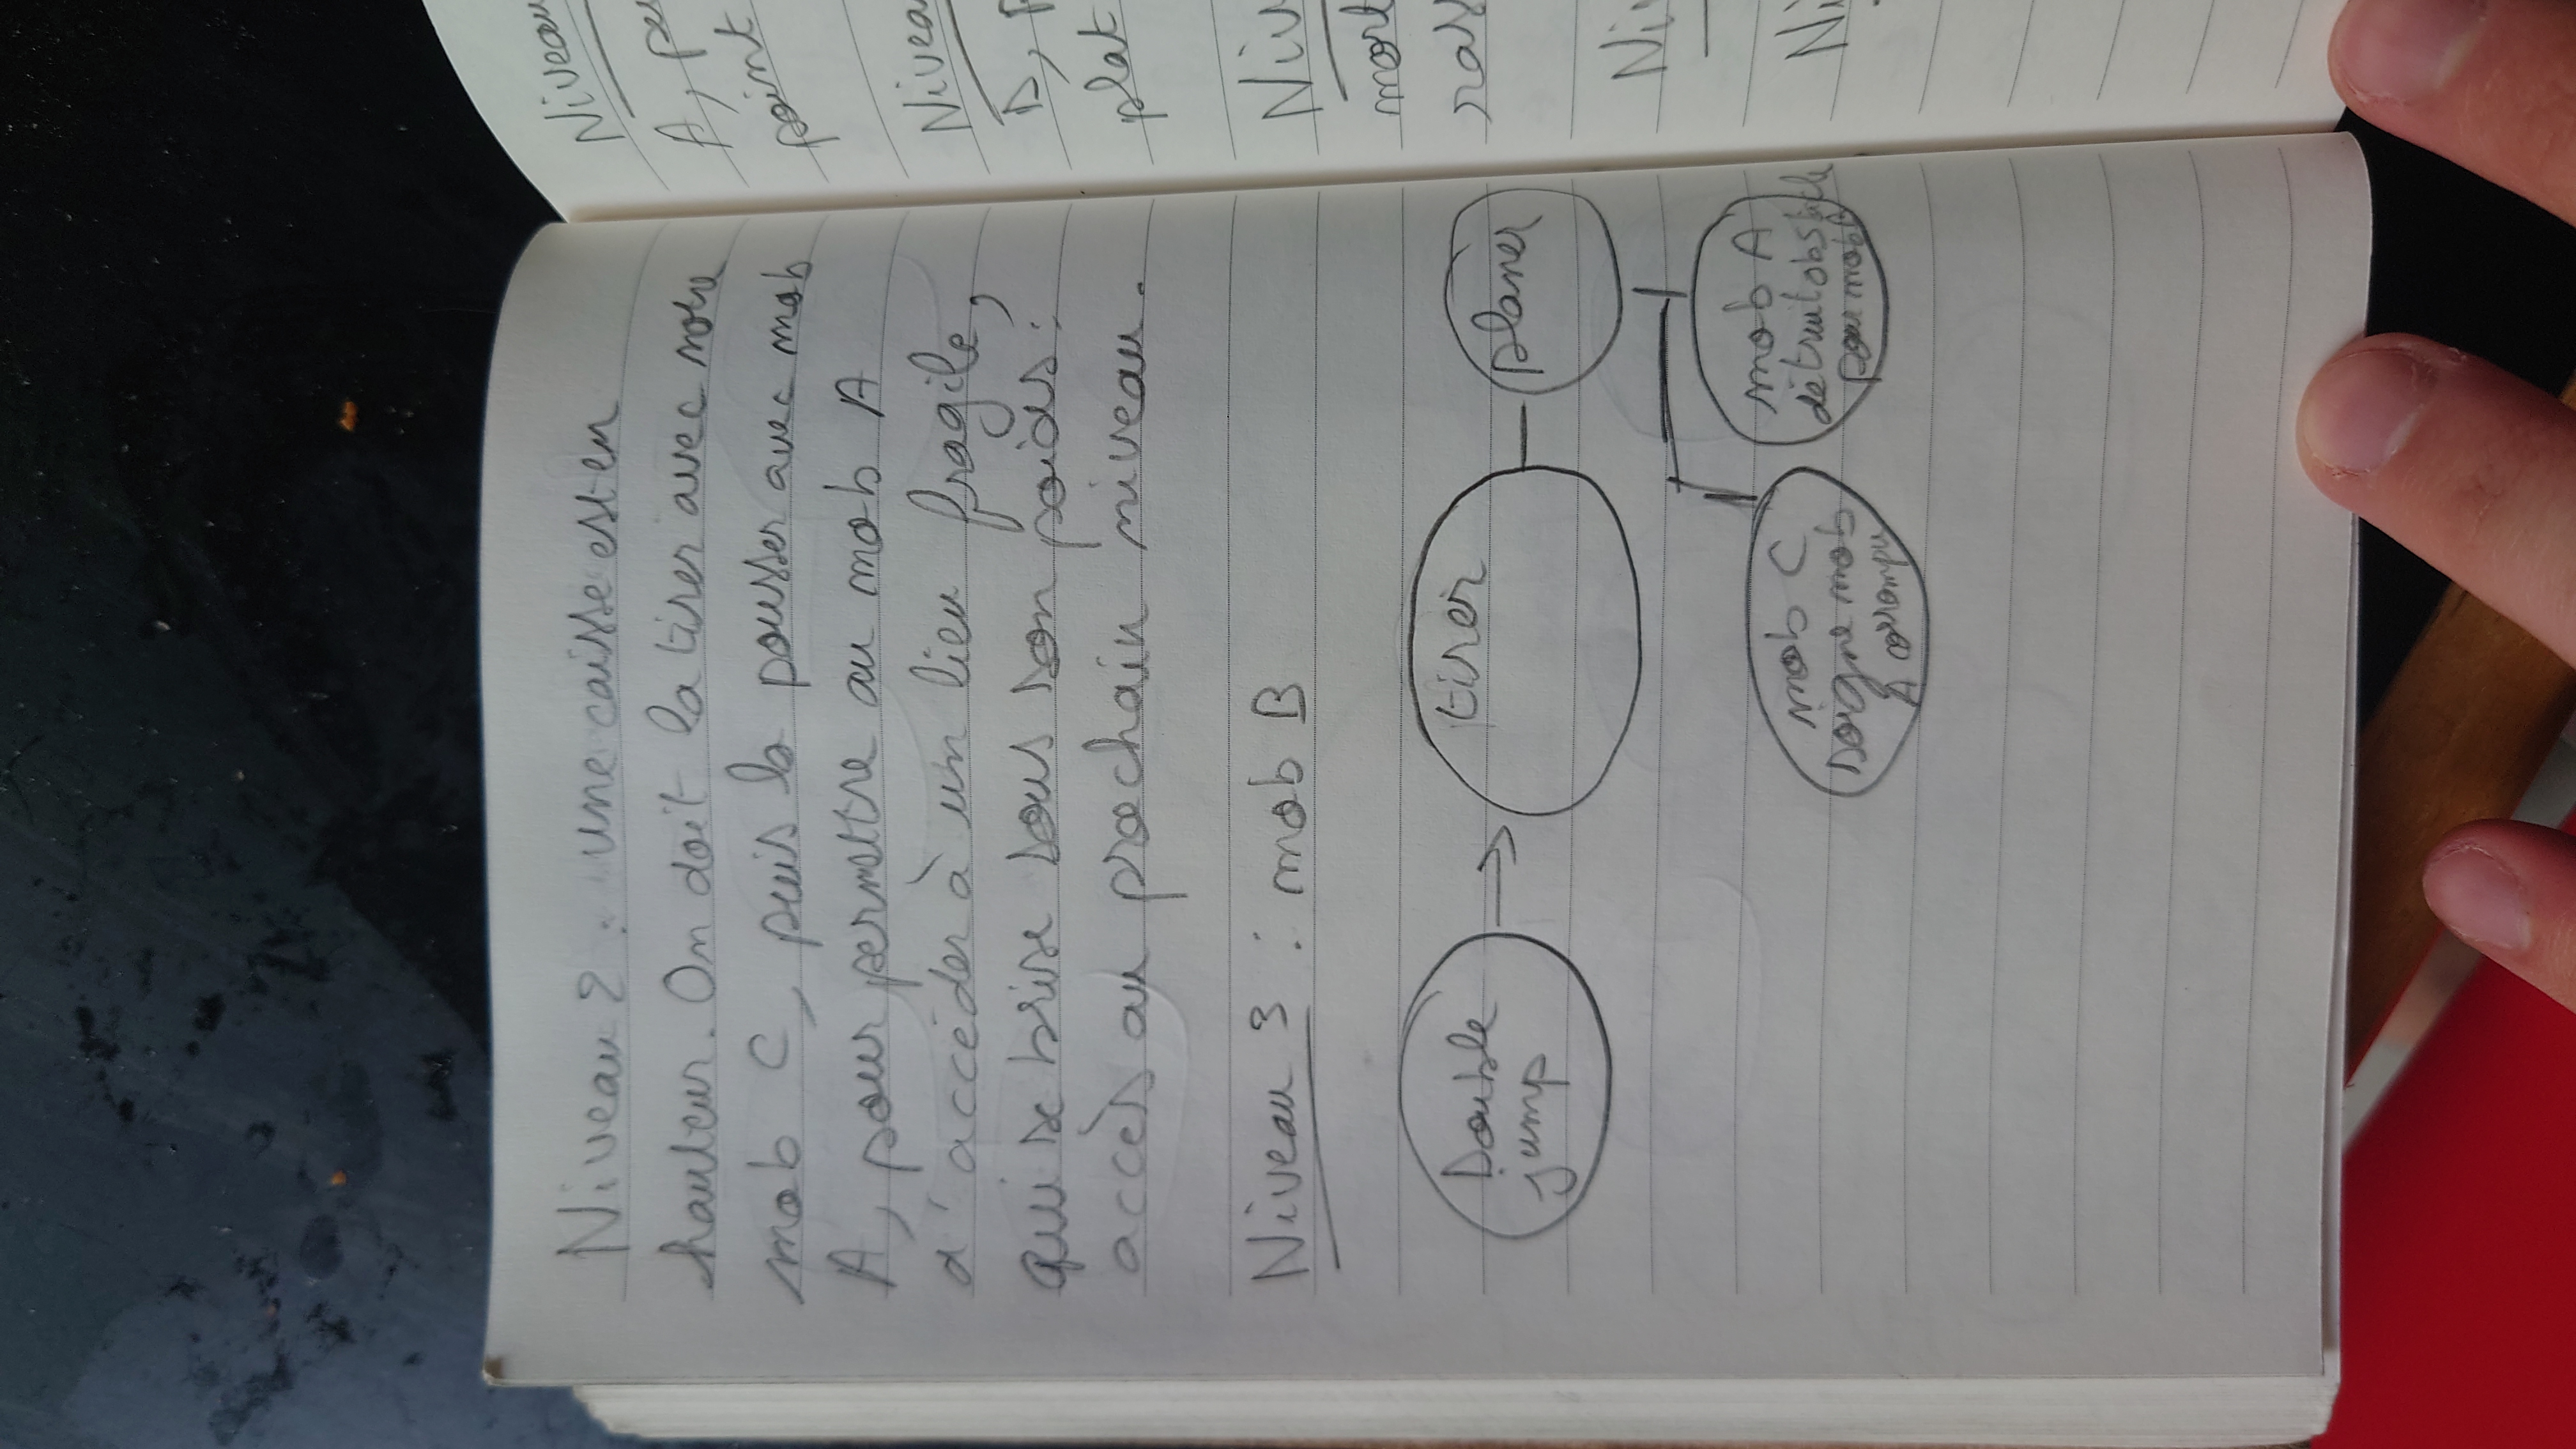 Niveau 2 : une caisse est en
hauteur. On doit la tirer avec notre
mob C, puis la pousser avec mob
A, pour permettre au mob A
d'accéder à un lieu fragile,
qui se brise sous son poids :
accès au prochain niveau.
Niveau 3 : mob B
Double
jump
tirer
planer
mob C
soigne mob
A corrompu
mob A
détruit obstacle
pour mob B
Niveau
A, pe
point
Nivea
D, p
plat
Niv
mort
ras
Ni
Ni